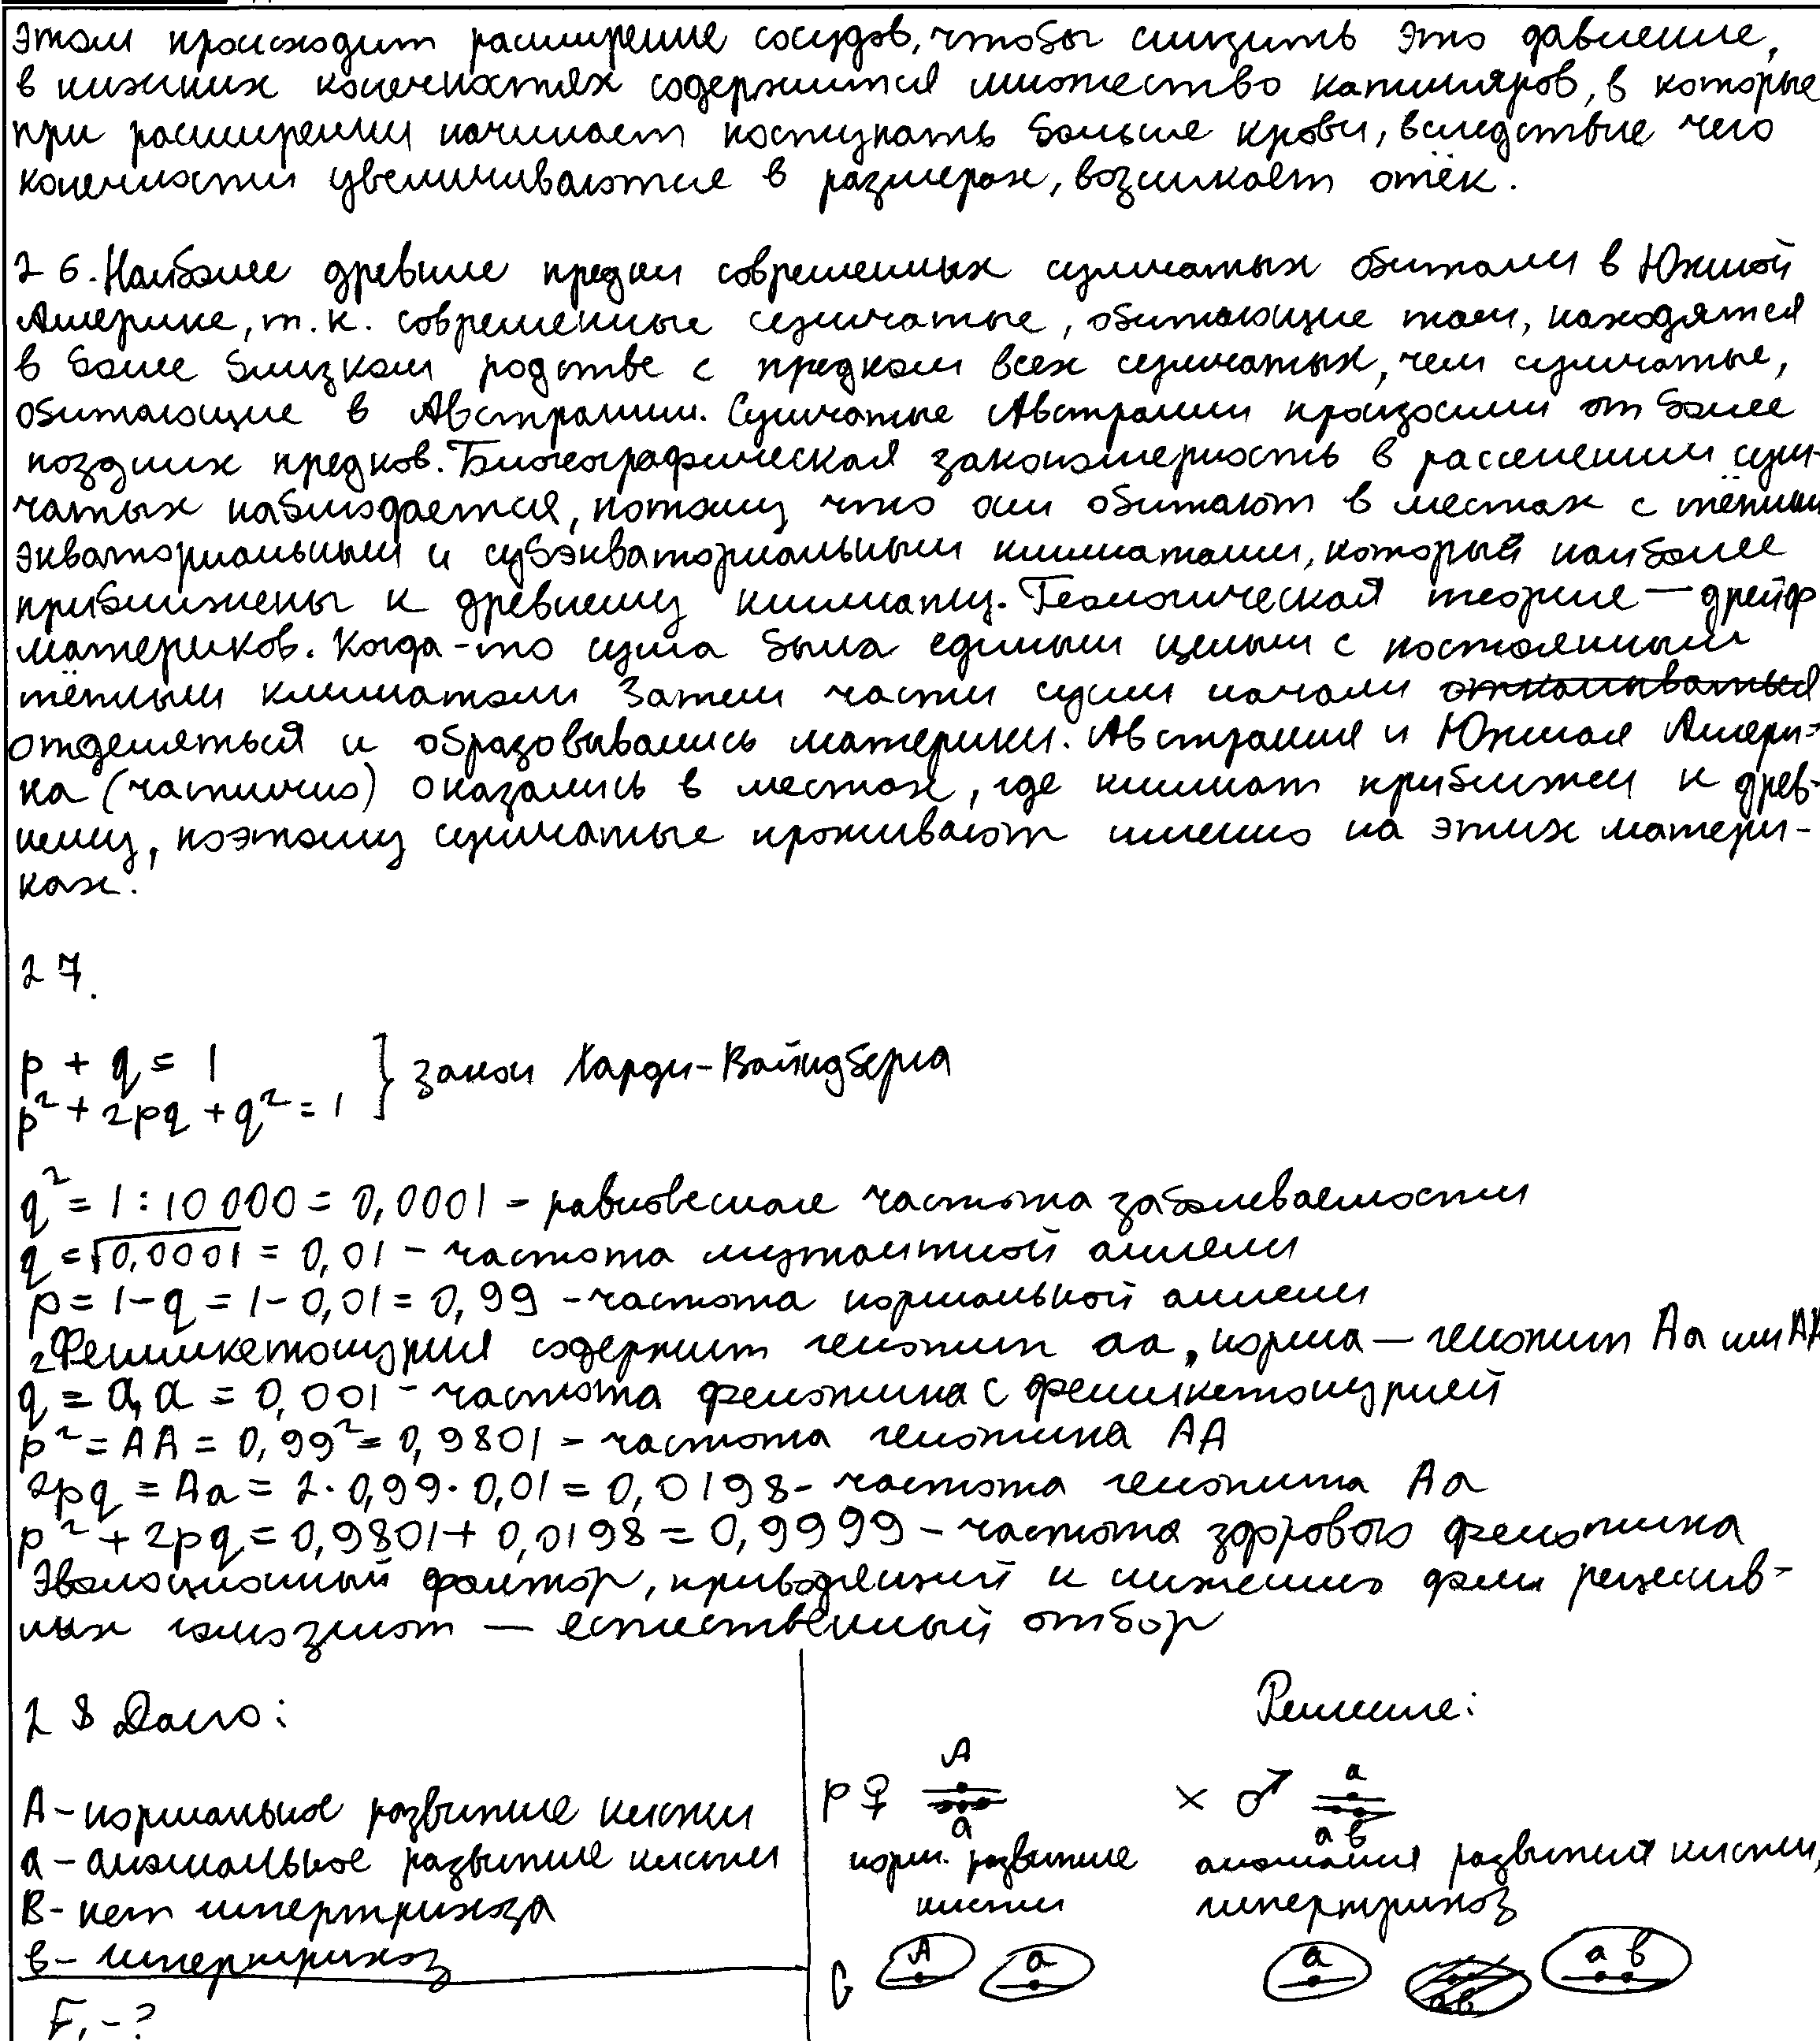 этом происходит расширение сосудов, чтобы снизить это давление,
в нижних конечностях содержится множество капилляров, в которые
при расширении начинает поступать больше крови, вследствие чего
конечности увеличиваются в размерах, возникает отёк.
26. Наиболее древние предки современных сумчатых обитали в Южной
Америке, т.к. современные сумчатые, обитающие там, находятся
в более близком родстве с предком всех сумчатых, чем сумчатые,
обитающие в Австралии. Сумчатые Австралии произошли от более
поздних предков. Биогеографическая закономерность в расселении сум-
чатых наблюдается, потому что они обитают в местах с тёплым
экваториальным и субэкваториальным климатами, который наиболее
приближены к древнему климату. Геологическая теория — дрейф
материков. Когда-то суша была единым целым с постоянным
тёплым климатом Затем части суши начали откалываться
отделяться и образовывались материки. Австралия и Южная Амери-
ка (частично) оказались в местах, где климат приближен к древ-
нему, поэтому сумчатые проживают именно на этих матери-
ках.
27.
p + q = 1
p² + 2pq + q² = 1 } закон Харди-Вайндберга
q² = 1 : 10 000 = 0,0001 – равновесная частота заболеваемости
q = √0,0001 = 0,01 – частота мутантной аллели
p = 1 – q = 1 – 0,01 = 0,99 – частота нормальной аллели
Фенилкетонурия содержит генотип аа, норма — генотип Аа или АА
q² = а, а = 0,001 – частота фенотипа с фенилкетонурией
p² = АА = 0,99² = 0,9801 – частота генотипа АА
2pq = Аа = 2 · 0,99 · 0,01 = 0,0198 – частота генотипа Аа
p² + 2pq = 0,9801 + 0,0198 = 0,9999 – частота здорового фенотипа
Эволюционный фактор, приводящий к снижению доли рецессив-
ных гомозигот — естественный отбор
28 Дано:
А – нормальное развитие кисти
а – аномальное развитие кисти
В – нет гипертрихоза
в – гипертрихоз
F₁ – ?
Решение:
P ♀ A a × ♂ a ав
норм. развитие аномалия развития кисти,
кисти гипертрихоз
G A a a ав а в